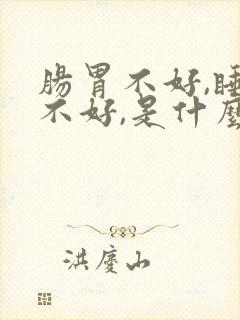 腸胃不好,睡
不好,是什麼
洪慶山